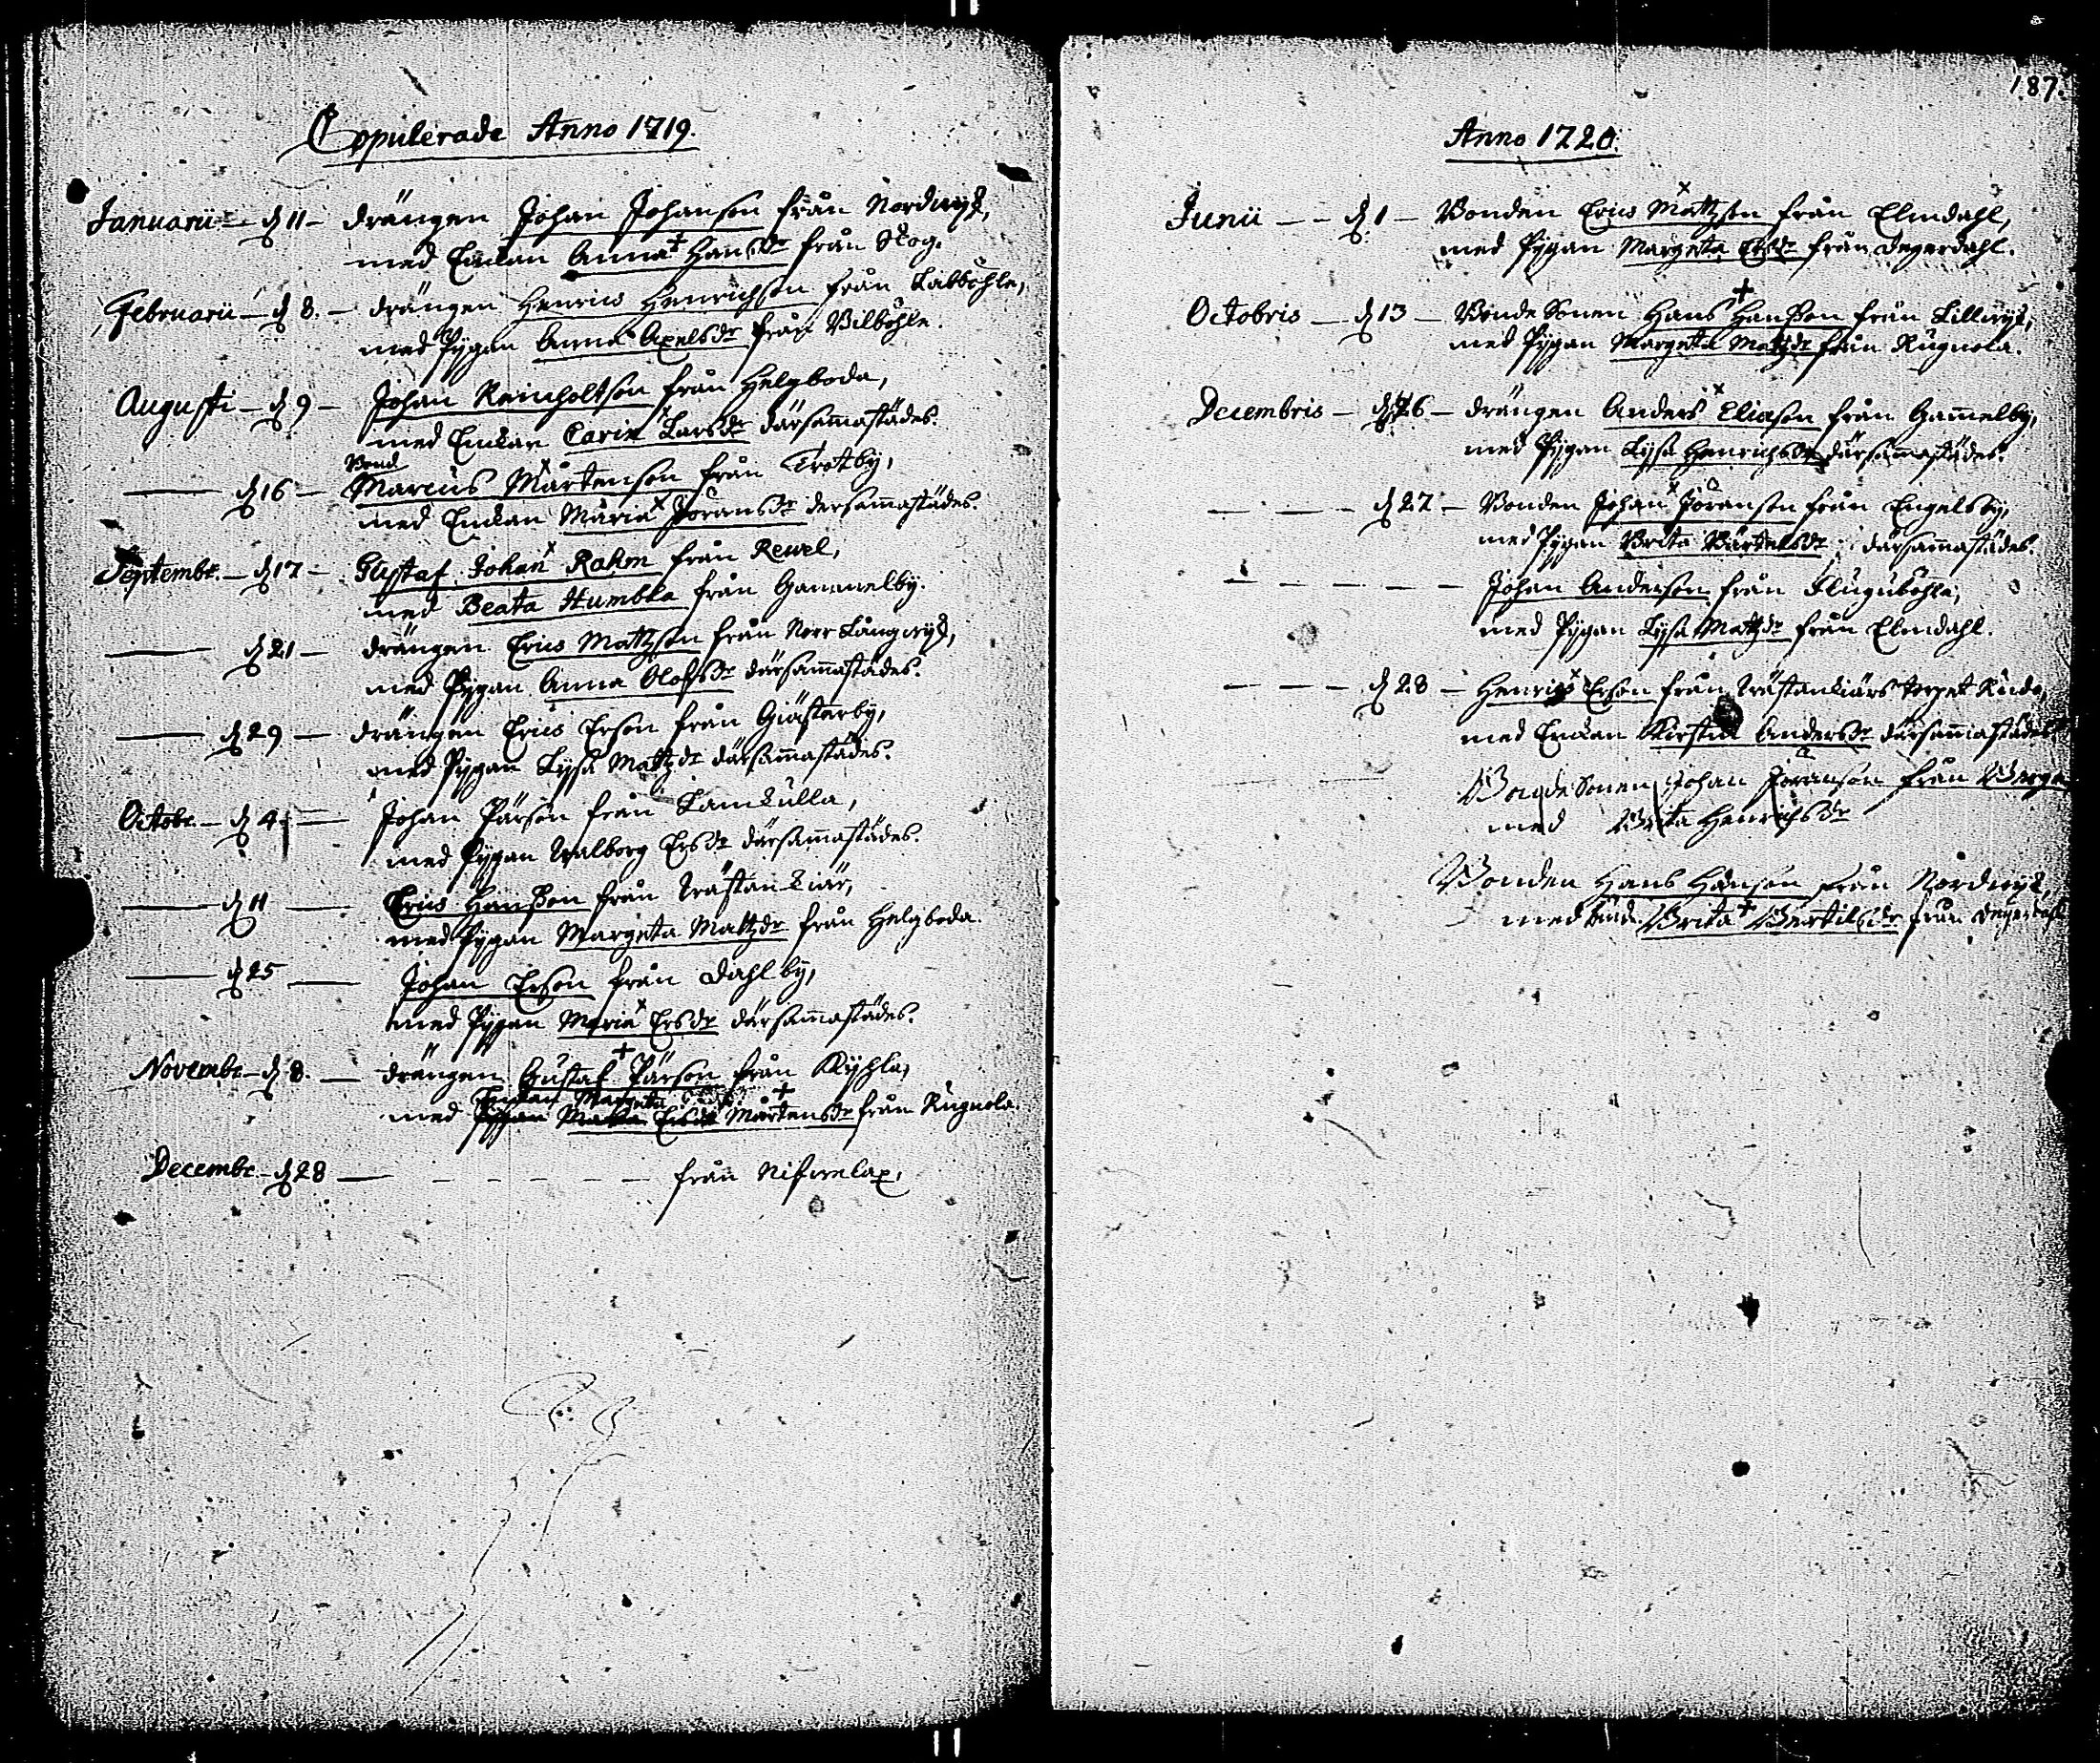 Copulerade Anno 1719.
Januarii - d 11 - drängen Johan Johanson från Nordwyk,
med Enckan Anna Hansdr från Skog.
Februarii - d 8. - drängen Henrics Henrichson från Labböhle,
med Pygan Anna Axelsdr från Bilböhle.
Augusti - d 9 - Johan Reinholtson från Helgboda,
med Enckan Carin Larsdr därsammastädes.
Bond
d 16 - Marcus Mårtenson från Trotby,
med Enckan Maria Jöransdr dersammastädes.
Septembr. - d 17 - Gustaf Johan Rahm från Rewel,
med Beata Humbla från Gammelby.
d 21 - drängen Erics Mattzson från Norr Långwyk,
med Pygan Anna Olofsdr därsammastädes.
d 29 - drängen Erics Erson från Giästerby,
med Pygan Lysa Mattzdr därsammastädes.
Octobr. - d 4. - Johan Pärson från Lamkulla,
med Pygan Walborg Ersdr därsammastädes.
d 11 - Erics Hanßon från Trästankiär,
med Pygan Margeta Mattzdr från Helgboda.
d 25 - Johan Erson från Dahlby,
med Pygan Maria Ersdr därsammastädes.
Novembr - d 8. - drängen Gustaf Pärson från Kyhla,
Enckan Margeta
med Mårtensdr från Rugnola.
Decembr. - d 28 - från Nifwelax,
187.
Anno 1720.
Junii - d 1 - Bonden Erics Mattzson från Elmdahl,
med Pygan Margeta Ersdr från Degerdahl.
Octobris - d 13 - Bonde Sonen Hans Hanßon från Lillwyk,
med Pygan Margeta Mattzdr från Rugnola.
Decembris - d 26 - drängen Anders Eliason från Gammelby,
med Pygan Lysa Henrichsdr därsammastädes.
d 27 - Bonden Johan Jöranson från Engelsby,
med Pygan Brita Bärtelsdr därsammastädes.
Johan Anderson från Fluguböhle,
med Pygan Lysa Mattzdr från Elmdahl.
d 28 - Henrics Erson från Trästankiärs torpet
med Enckan Kirstin Andersdr därsammastädes
Bonde Sonen Johan Jöranson från
med Brita Henrichsdr
Bonden Hans Hanson från Nordwyk,
med Brita Bertilsdr från Degerdahl